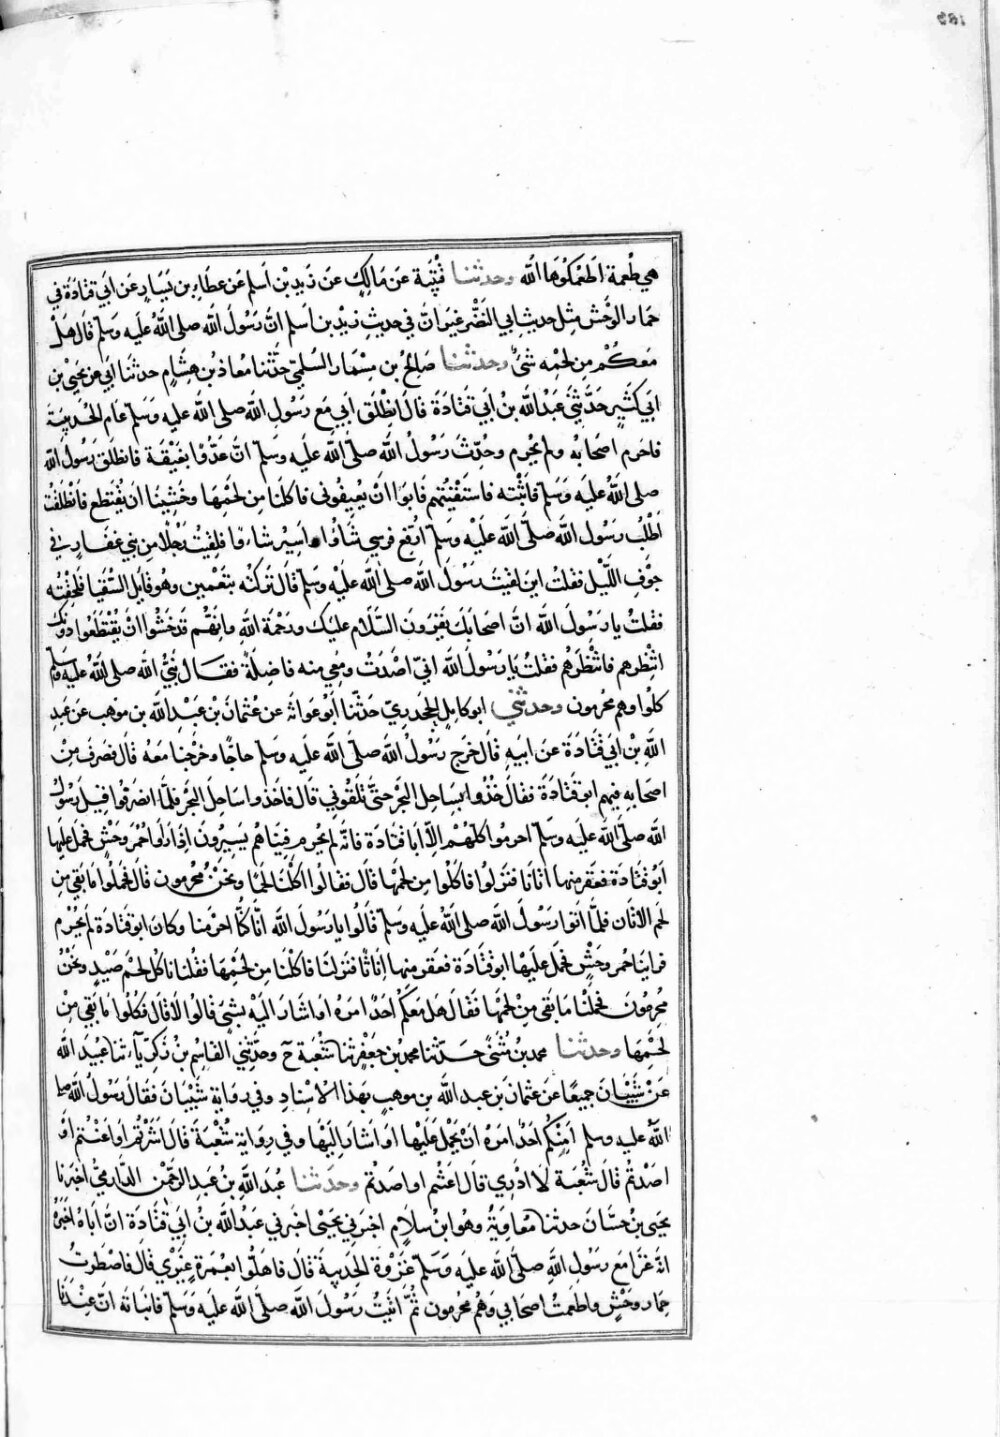 هي طعمة اطعمكوها الله وحدثنا قتيبة عن مالك عن زيد بن اسلم عن عطاء بن يسار عن ابي قتادة في
حمار الوحش مثل حديث ابي النضر غير ان في حديث زيد بن اسلم ان رسول الله صلى الله عليه وسلم قال هل
معكم من لحمه شئ وحدثنا صالح بن مسمار السلمي حدثنا معاذ بن هشام حدثنا ابي عن يحيى بن
ابي كثير حدثني عبد الله بن ابي قتادة قال انطلق ابي مع رسول الله صلى الله عليه وسلم عام الحديبية
فاحرم اصحابه ولم يحرم وحدث رسول الله صلى الله عليه وسلم ان عدوا بغيقة فانطلق رسول الله
صلى الله عليه وسلم فاثبته فاستعنتهم فابوا ان يعينوني فاكلنا من لحمها وخشينا ان يقتطع فانطلقت
اطلب رسول الله صلى الله عليه وسلم ارفع فرسي شاوا واسير شاوا فلقيت رجلا من بني غفار في
جوف الليل فقلت اين لقيت رسول الله صلى الله عليه وسلم قال تركته بتعهن وهو قايل السقيا فلحقته
فقلت يا رسول الله ان اصحابك يقرون السلام عليك ورحمة الله وانهم قد خشوا ان يقتطعوا دونك
انتظرهم فانتظرهم فقلت يا رسول الله اني اصدت ومعي منه فاضلة فقال نبي الله صلى الله عليه وسلم
كلوا وهم محرمون وحدثني ابو كامل الجحدري حدثنا ابو عوانة عن عثمان بن عبد الله بن موهب عن عبد
الله بن ابي قتادة عن ابيه قال خرج رسول الله صلى الله عليه وسلم حاجا وخرجنا معه قال فصرف من
اصحابه فيهم ابو قتادة فقال خذوا بساحل البحر حتى تلقوني قال فاخذوا ساحل البحر فلما انصرفوا قبل رسول
الله صلى الله عليه وسلم احرموا كلهم الا ابا قتادة فانه لم يحرم فبيناهم يسيرون اذ راوا حمر وحش فحمل عليها
ابو قتادة فعقر منها اتانا فنزلوا فاكلوا من لحمها قال فقالوا اكلنا لحما ونحن محرمون قال فحملوا ما بقي من
لحم الاتان فلما اتوا رسول الله صلى الله عليه وسلم قالوا يا رسول الله انا كنا احرمنا وكان ابو قتادة لم يحرم
فراينا حمر وحش فحمل عليها ابو قتادة فعقر منها اتانا فنزلنا فاكلنا من لحمها فقلنا ناكل لحم صيد ونحن
محرمون فحملنا ما بقي من لحمها فقال هل معكم احد امره او اشار اليه بشئ قالوا لا قال فكلوا ما بقي من
لحمها وحدثنا محمد بن مثنى حدثنا محمد بن جعفر ثنا شعبة ح وحدثني القاسم بن زكرياء ثنا عبيد الله
عن شيبان جميعا عن عثمان بن عبد الله بن موهب بهذا الاسناد وفي رواية شيبان فقال رسول الله صلى
الله عليه وسلم امنكم احد امره ان يحمل عليها او اشار اليها وفي رواية شعبة قال اشرتم او اعنتم او
اصدتم قال شعبة لا ادري قال اعنتم او اصدتم وحدثنا عبد الله بن عبد الرحمن الدارمي اخبرنا
يحيى بن حسان حدثنا معاوية وهو ابن سلام اخبرني يحيى اخبرني عبد الله بن ابي قتادة ان اباه اخبره
انه غزا مع رسول الله صلى الله عليه وسلم غزوة الحديبية قال فاهلوا بعمرة غيري قال فاصطدت
حمار وحش واطعمت اصحابي وهم محرمون ثم اتيت رسول الله صلى الله عليه وسلم فانباته ان عندنا